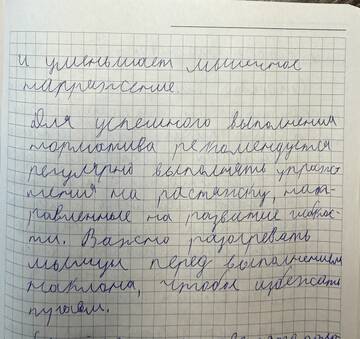 и уменьшает мышечное
напряжение.
Для успешного выполнения
норматива рекомендуется
регулярно выполнять упраж
нения на растяжку, нап
равленные на развитие гибкос
ти. Важно разогревать
мышцы перед выполнением
наклона, чтобы избежать